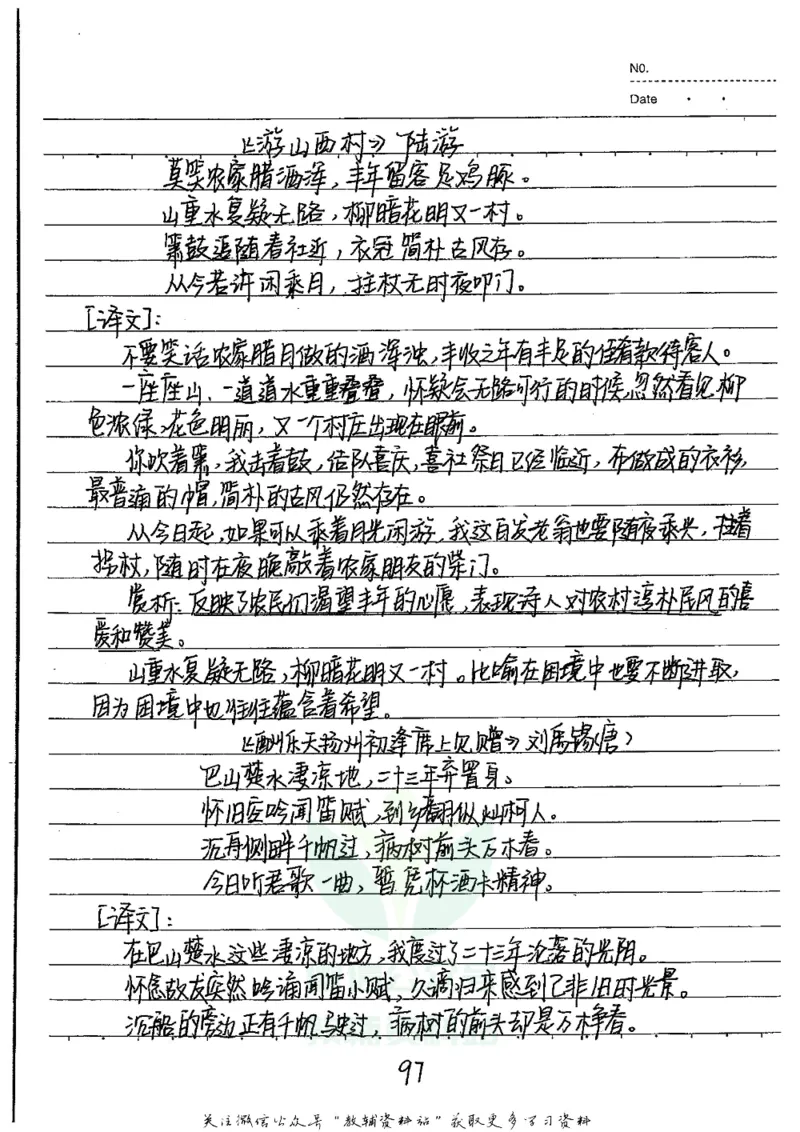 No.
Date
《游山西村》 陆游
莫笑农家腊酒浑，丰年留客足鸡豚。
山重水复疑无路，柳暗花明又一村。
箫鼓追随春社近，衣冠简朴古风存。
从今若许闲乘月，拄杖无时夜叩门。
[译文]:
不要笑话农家腊月做的酒浑浊，丰收之年有丰足的佳肴款待客人。
一座座山、一道道水重重叠叠，怀疑会无路可行的时候，忽然看见柳
色浓绿、花色明丽，又一个村庄出现在眼前。
你吹着箫，我击着鼓，结队喜庆，喜社祭日已经临近，布做成的衣衫，
最普通的帽，简朴的古风仍然存在。
从今日起，如果可以乘着月光闲游，我这白发老翁也要随夜乘兴，拄着
拐杖，随时在夜晚敲着农家朋友的柴门。
赏析：反映了农民们渴望丰年的心愿，表现诗人对农村淳朴民风的喜
爱和赞美。
山重水复疑无路，柳暗花明又一村。比喻在困境中也要不断进取，
因为困境中也往往蕴含着希望。
《酬乐天扬州初逢席上见赠》刘禹锡(唐)
巴山楚水凄凉地，二十三年弃置身。
怀旧空吟闻笛赋，到乡翻似烂柯人。
沉舟侧畔千帆过，病树前头万木春。
今日听君歌一曲，暂凭杯酒长精神。
[译文]:
在巴山楚水这些凄凉的地方，我度过了二十三年沦落的光阴。
怀念故友突然吟诵闻笛小赋，久谪归来感到已非旧时光景。
沉船的旁边正有千帆驶过，病树的前头却是万木争春。
97
关注微信公众号"教辅资料站"获取更多学习资料